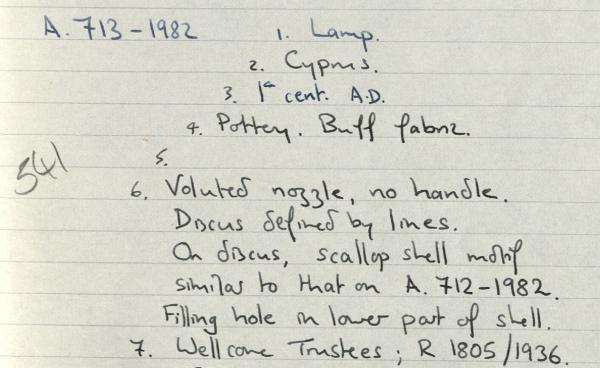 A. 713-1982 1. Lamp.
2. Cyprus.
3. 1st cent. A.D.
4. Pottery. Buff fabric.
541
5.
6. Voluted nozzle, no handle.
Discus defined by lines.
On discus, scallop shell motif
similar to that on A. 712-1982.
Filling hole in lower part of shell.
7. Wellcome Trustees; R 1805/1936.